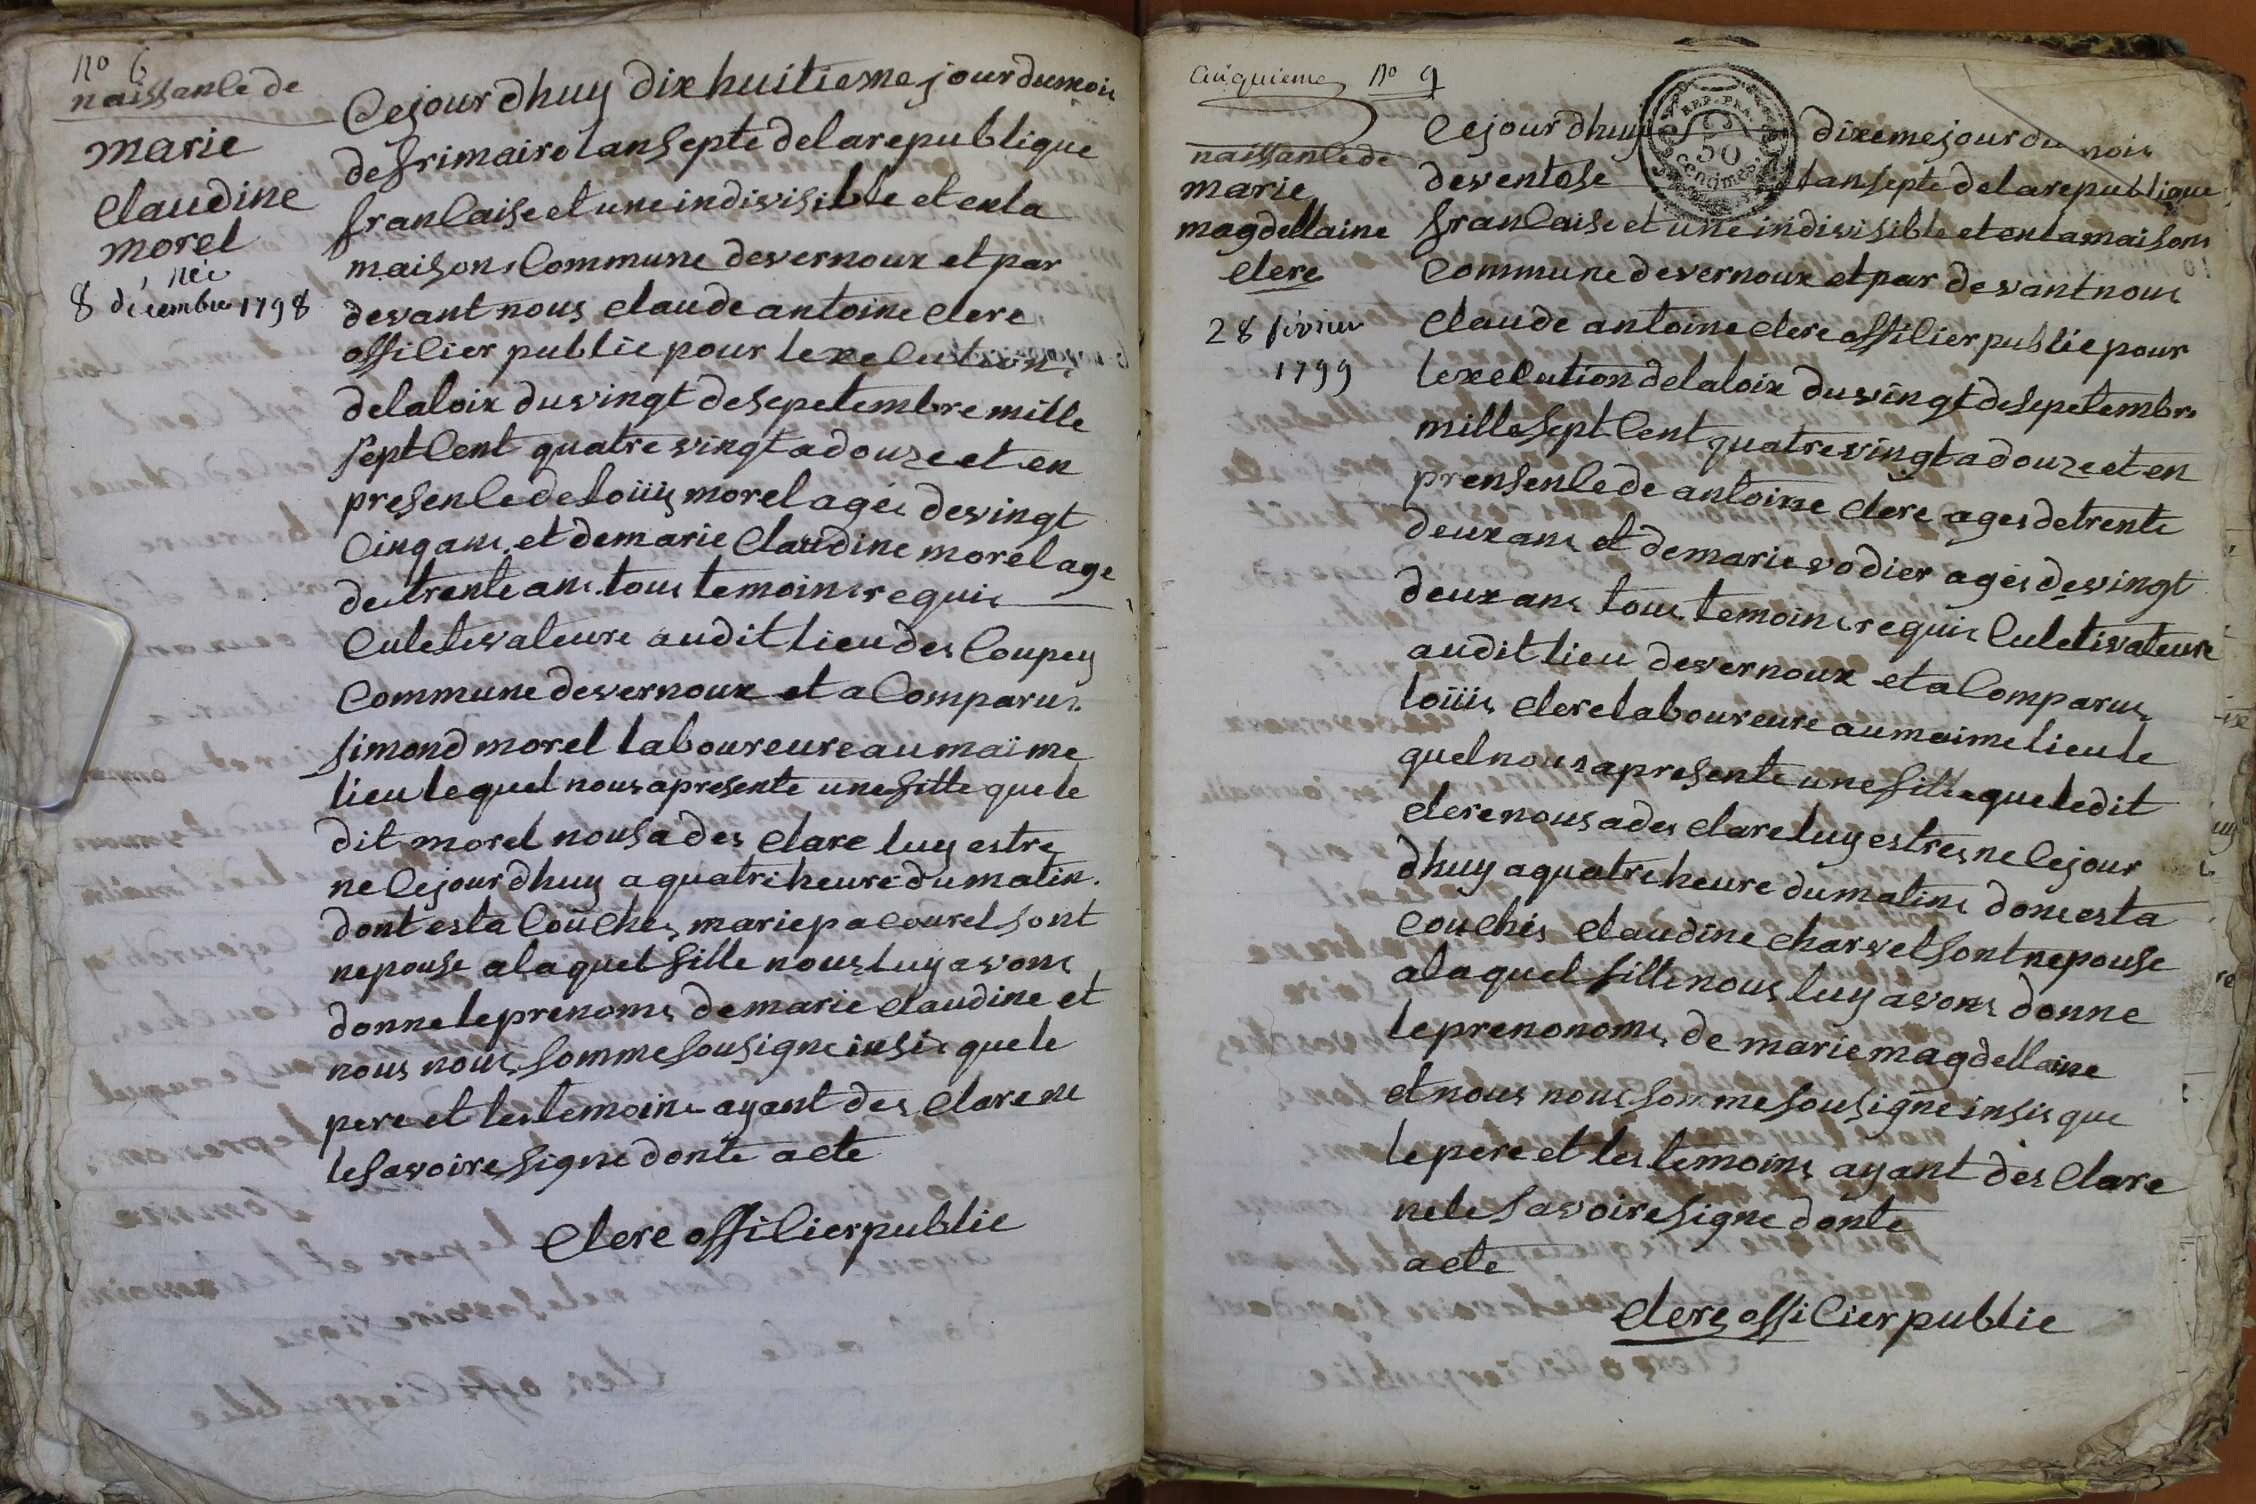 no 6
naissanle de
marie
Claudine
morel
née
8 décembre 1798
Cejour dhuy dix huitiesme jour du mois
de frimaire lan septe de la republique
franlaise et une indivisible et en la
maisons Commune de vernoux et par
devant nous claude antoine clere
offilier public pour lexelution
de la loix du vingt de sepetembre mille
sept Cent quatre vingt a douze et en
presenle de loüis morel agés de vingt
Cinq ans et de marie Claudine morel age
de trente ans tous temoins requis
Culetivateure audit lieu des Coupey
Commune de vernoux et a Comparus
simond morel laboureure au maime
lieu lequel nous a presente une fille que le
dit morel nous a des clare luy estre
ne Cejour dhuy a quatre heure du matin
dont est a Coüches marie pacouret sont
nepouse a la quel fille nous luy avons
donne le prenoms de marie claudine et
nous nous somme sousigne insis que le
pere et les temoins ayant des clare ne
le savoire signe donte acte
Clere offilier public
Cinquieme no 9
naissanle de
marie
magdellaine
clere
28 février
1799
REP. FRA.
50
Centimes
Cejour dhuy dixeme jour du mois
de ventose lan septe de la republique
franlaise et une indivisible et en la maisons
Commune de vernoux et par devant nous
Claude antoine clere offilier public pour
lexelution de la loix du vingt de sepetembre
mille sept Cent quatre vingt a douze et en
prensenle de antoine clere ages de trente
deux ans et de marie vodier agés de vingt
deux ans tous temoins requis Culetivateure
audit lieu de vernoux et a Comparus
loüis clere laboureure au maime lieu le
quel nous a presente une fille que le dit
clere nous a des clare luy estre ne Cejour
dhuy a quatre heure du matins dons est a
Couches claudine charvet sont nepouse
a la quel fille nous luy avons donne
le prenonoms de marie magdellaine
et nous nous somme sousigne insis que
le pere et les temoins ayant des clare
ne le savoire signe donte
acte
clere offilier public